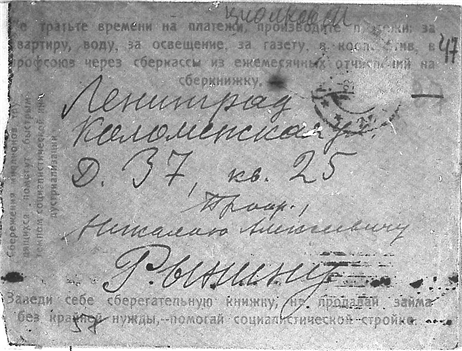 Циолковский
Не тратьте времени на платежи, производите платежи: за
квартиру, воду, за освещение, за газету, в
47
профсоюз через сберкассы из ежемесячных отчислений на
сберкнижку.
Ленинград
Коломенская ул.
Д. 37, кв. 25
Проф.,
Николаю Алексеевичу
Рынину
Сбережения миллионов
быстрым
темпом социалистической ин-
дустриализации
Заведи себе сберегательную книжку, не продавай займа
без крайней нужды,-помогай социалистической стройке.
37